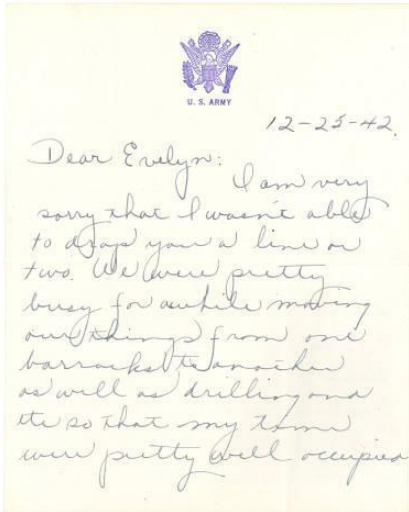 U. S. ARMY
12-25-42.
Dear Evelyn:
I am very
sorry that I wasn't able
to drop you a line or
two. We were pretty
busy for awhile moving
our things from one
barracks to another
as well as drilling and
etc so that my time
were pretty well occupied